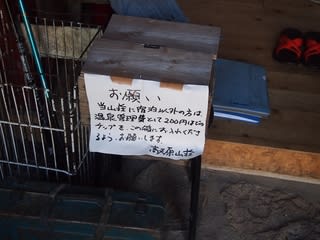 お願い
当山荘に宿泊以外の方は、
温泉管理費として200円ほど
チップを、この箱にお入れくださ
るよう、お願いします。
山荘